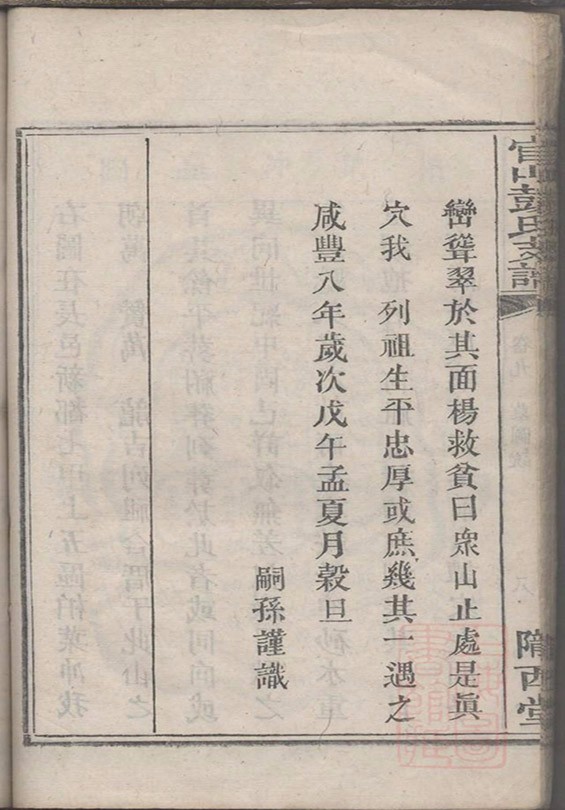 官山彭氏支譜
卷九
隴西堂
巒聳翠於其面楊救貧曰衆山止處是眞
穴我 列祖生平忠厚或庶幾其一遇之
咸豐八年歲次戊午孟夏月穀旦
嗣孫謹識